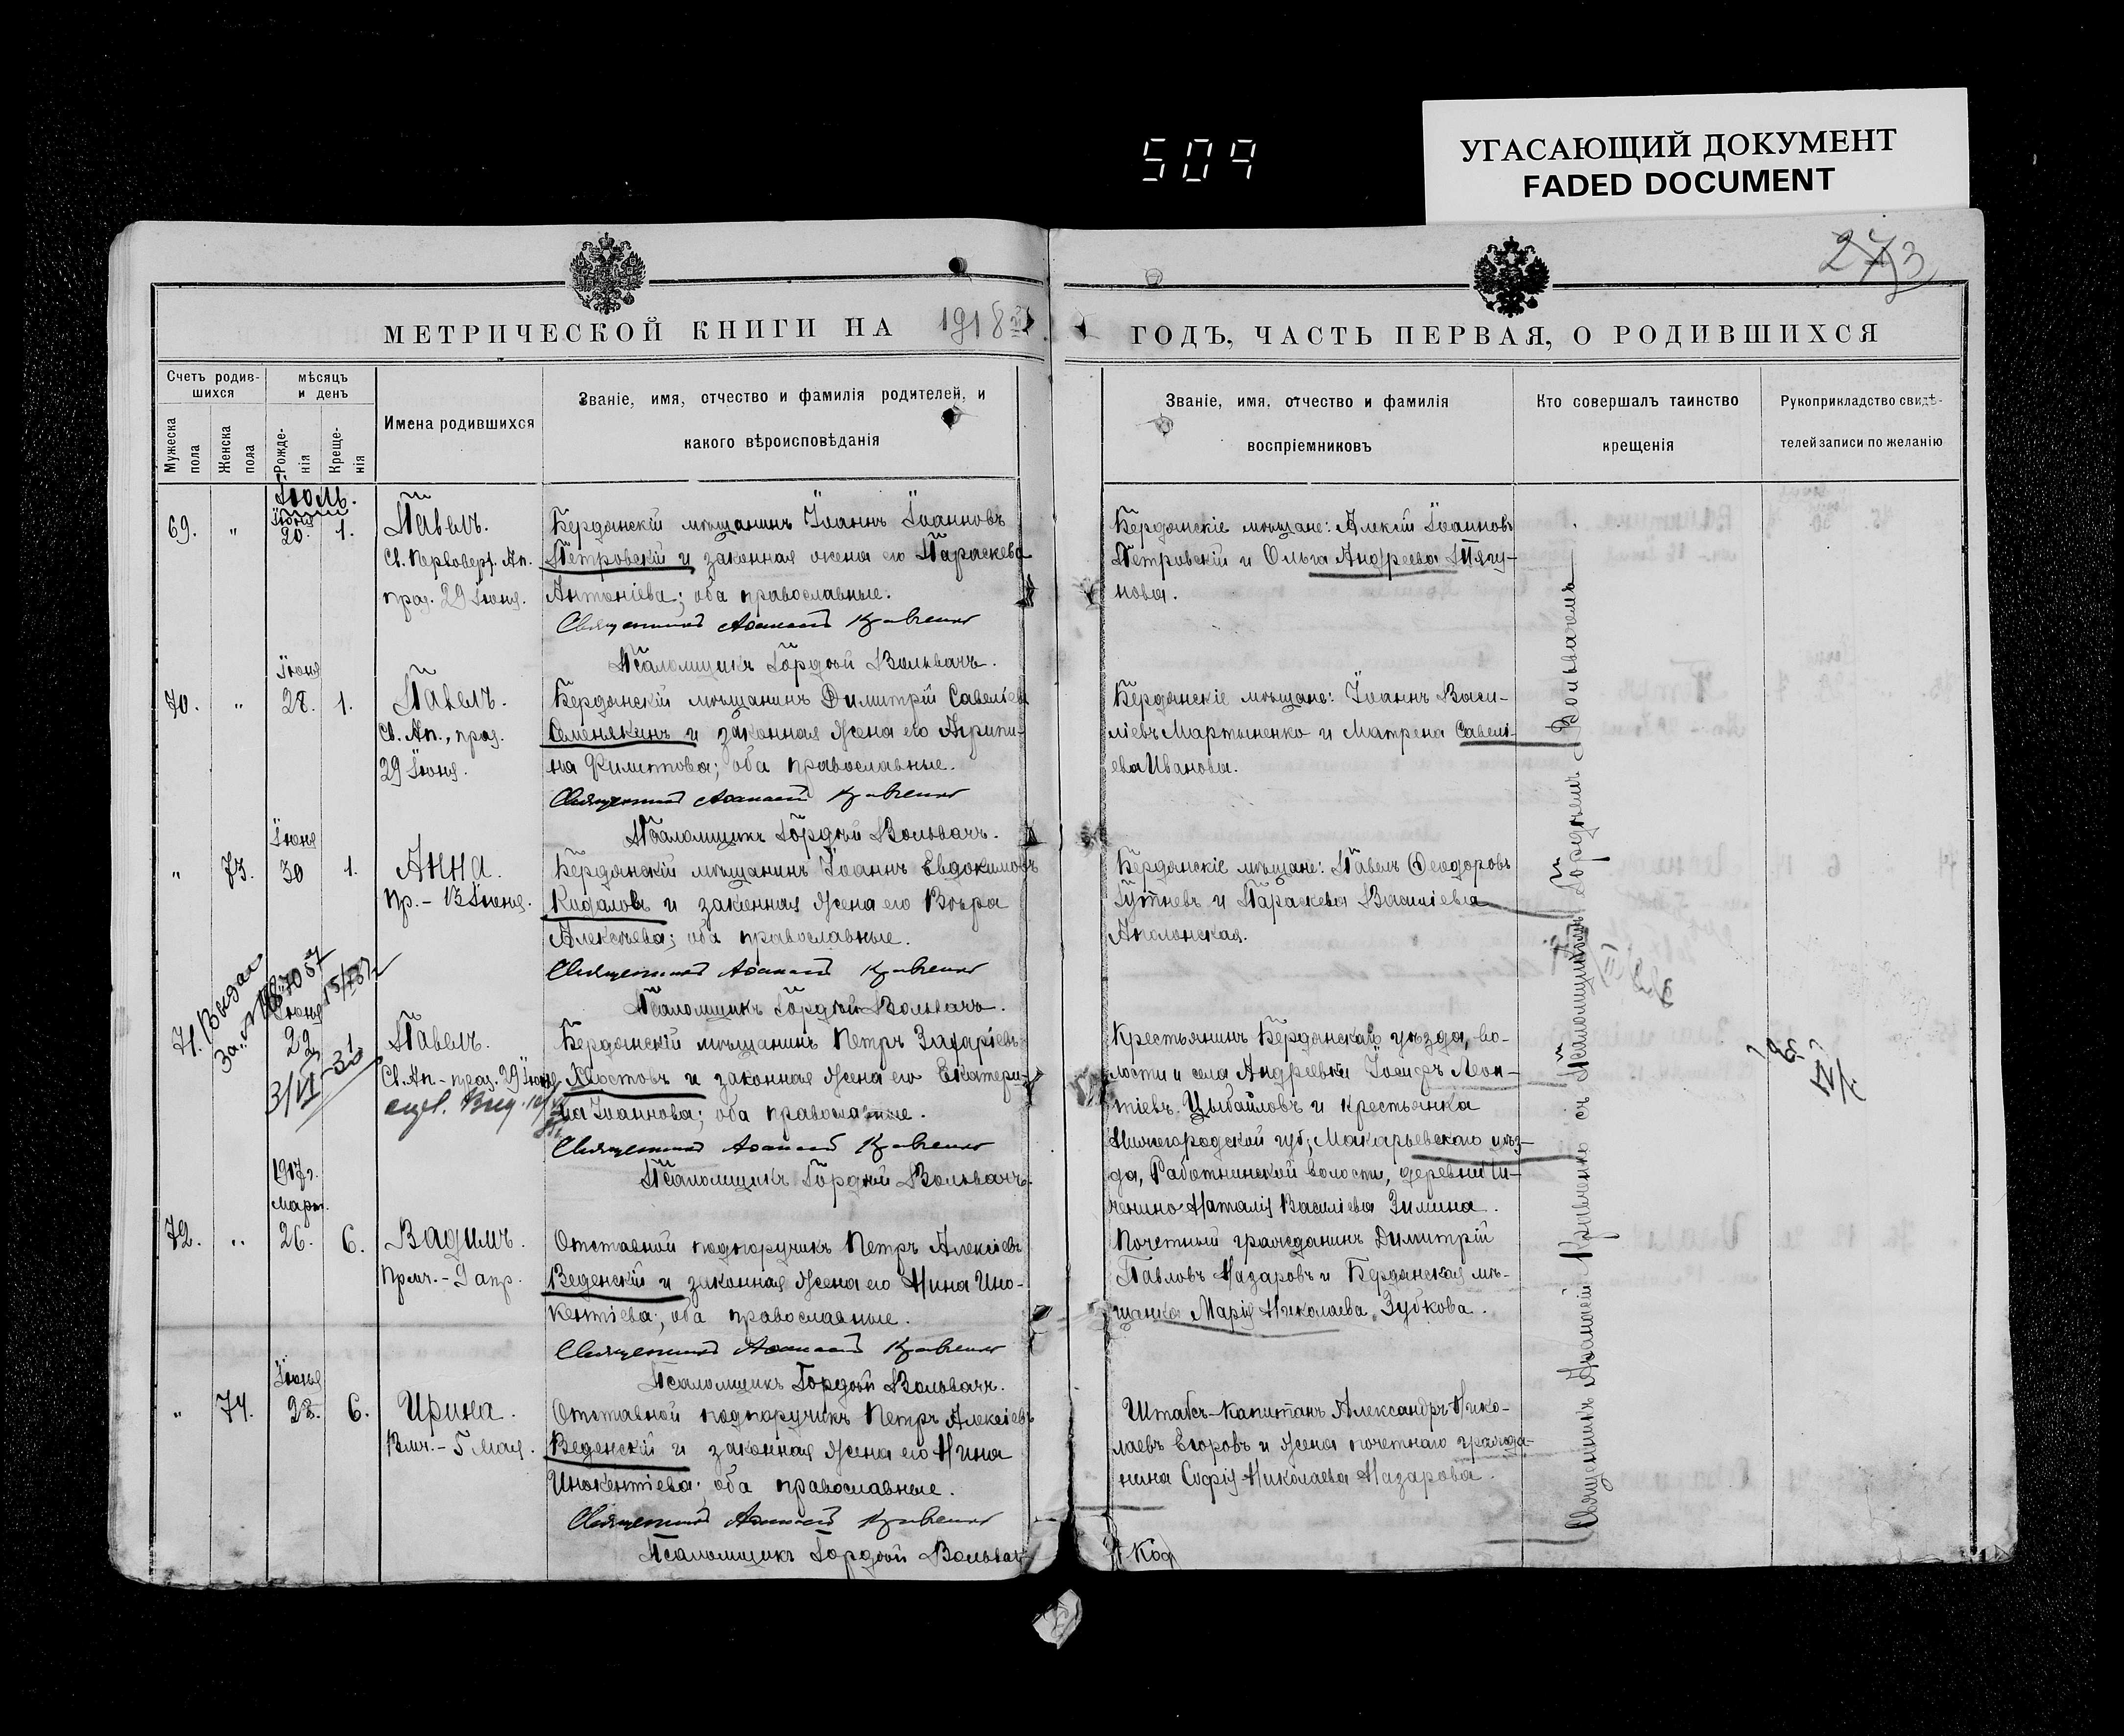 509
УГАСАЮЩИЙ ДОКУМЕНТ
FADED DOCUMENT
273
МЕТРИЧЕСКОЙ КНИГИ НА 1918
ГОДЪ, ЧАСТЬ ПЕРВАЯ, О РОДИВШИХСЯ
Счетъ родив-
шихся
Мужеска
пола
Женска
пола
мѣсяцъ
и день
Рожде-
нія
Креще-
нія
Имена родившихся
Званіе, имя, отчество и фамилія родителей, и
какого вѣроисповѣданія
Званіе, имя, отчество и фамилія
воспріемниковъ
Кто совершалъ таинство
крещенія
Рукоприкладство свидѣ-
телей записи по желанію
Іюль.
69. " Іюня 20. 1.
Павелъ.
Св. Первоверх. Ап.
праз. 29 Іюня.
Бердянскій мѣщанинъ Іоаннъ Іоанновъ
Петровскій и законная жена его Параскева
Антоніева; оба православные.
Священникъ Афанасій Кравченко
Псаломщикъ Гордѣй Вольвачъ.
Бердянскіе мѣщане: Алексій Іоанновъ
Петровскій и Ольга Андреева Тягу-
нова.
70. " Іюня 28. 1.
Павелъ.
Св. Ап., праз.
29 Іюня.
Бердянскій мѣщанинъ Димитрій Савеліевъ
Семенякинъ и законная жена его Агрипи-
на Филиппова; оба православные.
Священникъ Афанасій Кравченко
Псаломщикъ Гордѣй Вольвачъ.
Бердянскіе мѣщане: Іоаннъ Васи-
ліевъ Мартыненко и Матрена Савелі-
ева Иванова.
" 73. Іюня 30 1.
Анна.
Пр. - 13 Іюня.
Бердянскій мѣщанинъ Іоаннъ Евдокимовъ
Кидаловъ и законная жена его Вѣра
Алексѣева; оба православные.
Священникъ Афанасій Кравченко
Псаломщикъ Гордѣй Вольвачъ.
Бердянскіе мѣщане: Павелъ Феодоровъ
и Параскева Василіева
Аполонская.
71. Іюня 1
Павелъ.
Св. Ап - праз. 29 Іюня
Бердянскій мѣщанинъ Петръ Захаріевъ
Хлостовъ и законная жена его Екатери-
на Іоаннова; оба православные.
Священникъ Афанасій Кравченко
Псаломщикъ Гордѣй Вольвачъ.
Крестьянинъ Бердянскаго уѣзда, во-
лости и села Андреевки Іосифъ Леон-
тіевъ Цыбайловъ и крестьянка
Нижегородской губ., Макарьевскаго уѣз-
да, Работкинской волости, деревни
Наталія Василіева Зимина.
1917 г.
Март.
72. " 26. 6.
Вадимъ.
Прмч. - 9 апр.
Отставной подпоручикъ Петръ Алексіевъ
Веденскій и законная жена его Нина Ино-
кентіева; оба православные.
Священникъ Афанасій Кравченко
Псаломщикъ Гордѣй Вольвачъ.
Почетный гражданинъ Димитрій
Павловъ Назаровъ и Бердянская мѣ-
щанка Марія Николаева Зубкова.
" 74. Іюня 28. 6.
Ирина.
Вмч. - 5 мая.
Отставной подпоручикъ Петръ Алексіевъ
Веденскій и законная жена его Нина
Инокентіева; оба православные.
Священникъ Афанасій Кравченко
Псаломщикъ Гордѣй Вольвачъ
Штабсъ-Капитанъ Александръ Нико-
лаевъ Егоровъ и жена почетнаго гражда-
нина Софія Николаева Назарова.
Священникъ Афанасій Кравченко съ Псаломщикомъ Гордѣемъ Вольвачемъ